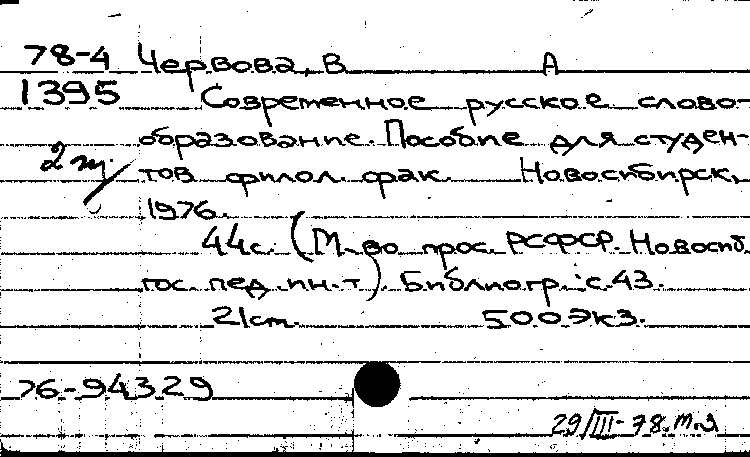 78-4 Червова, В А
1395 Современное русское слово-
образование. Пособие для студен-
2 т/
тов филол. фак. Новосибирск,
1976.
44с. (М-во прос. РСФСР. Новосиб.
гос. пед. ин-т). Библиогр.: с. 43.
21 см. 500 экз.
76-94329
29/III-78.